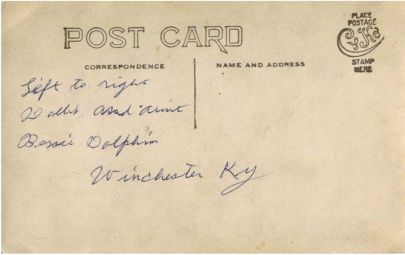 POST CARD
CORRESPONDENCE
NAME AND ADDRESS
PLACE
POSTAGE
STAMP
HERE
Left to right
and Aunt
Bessie Dolphin
Winchester Ky